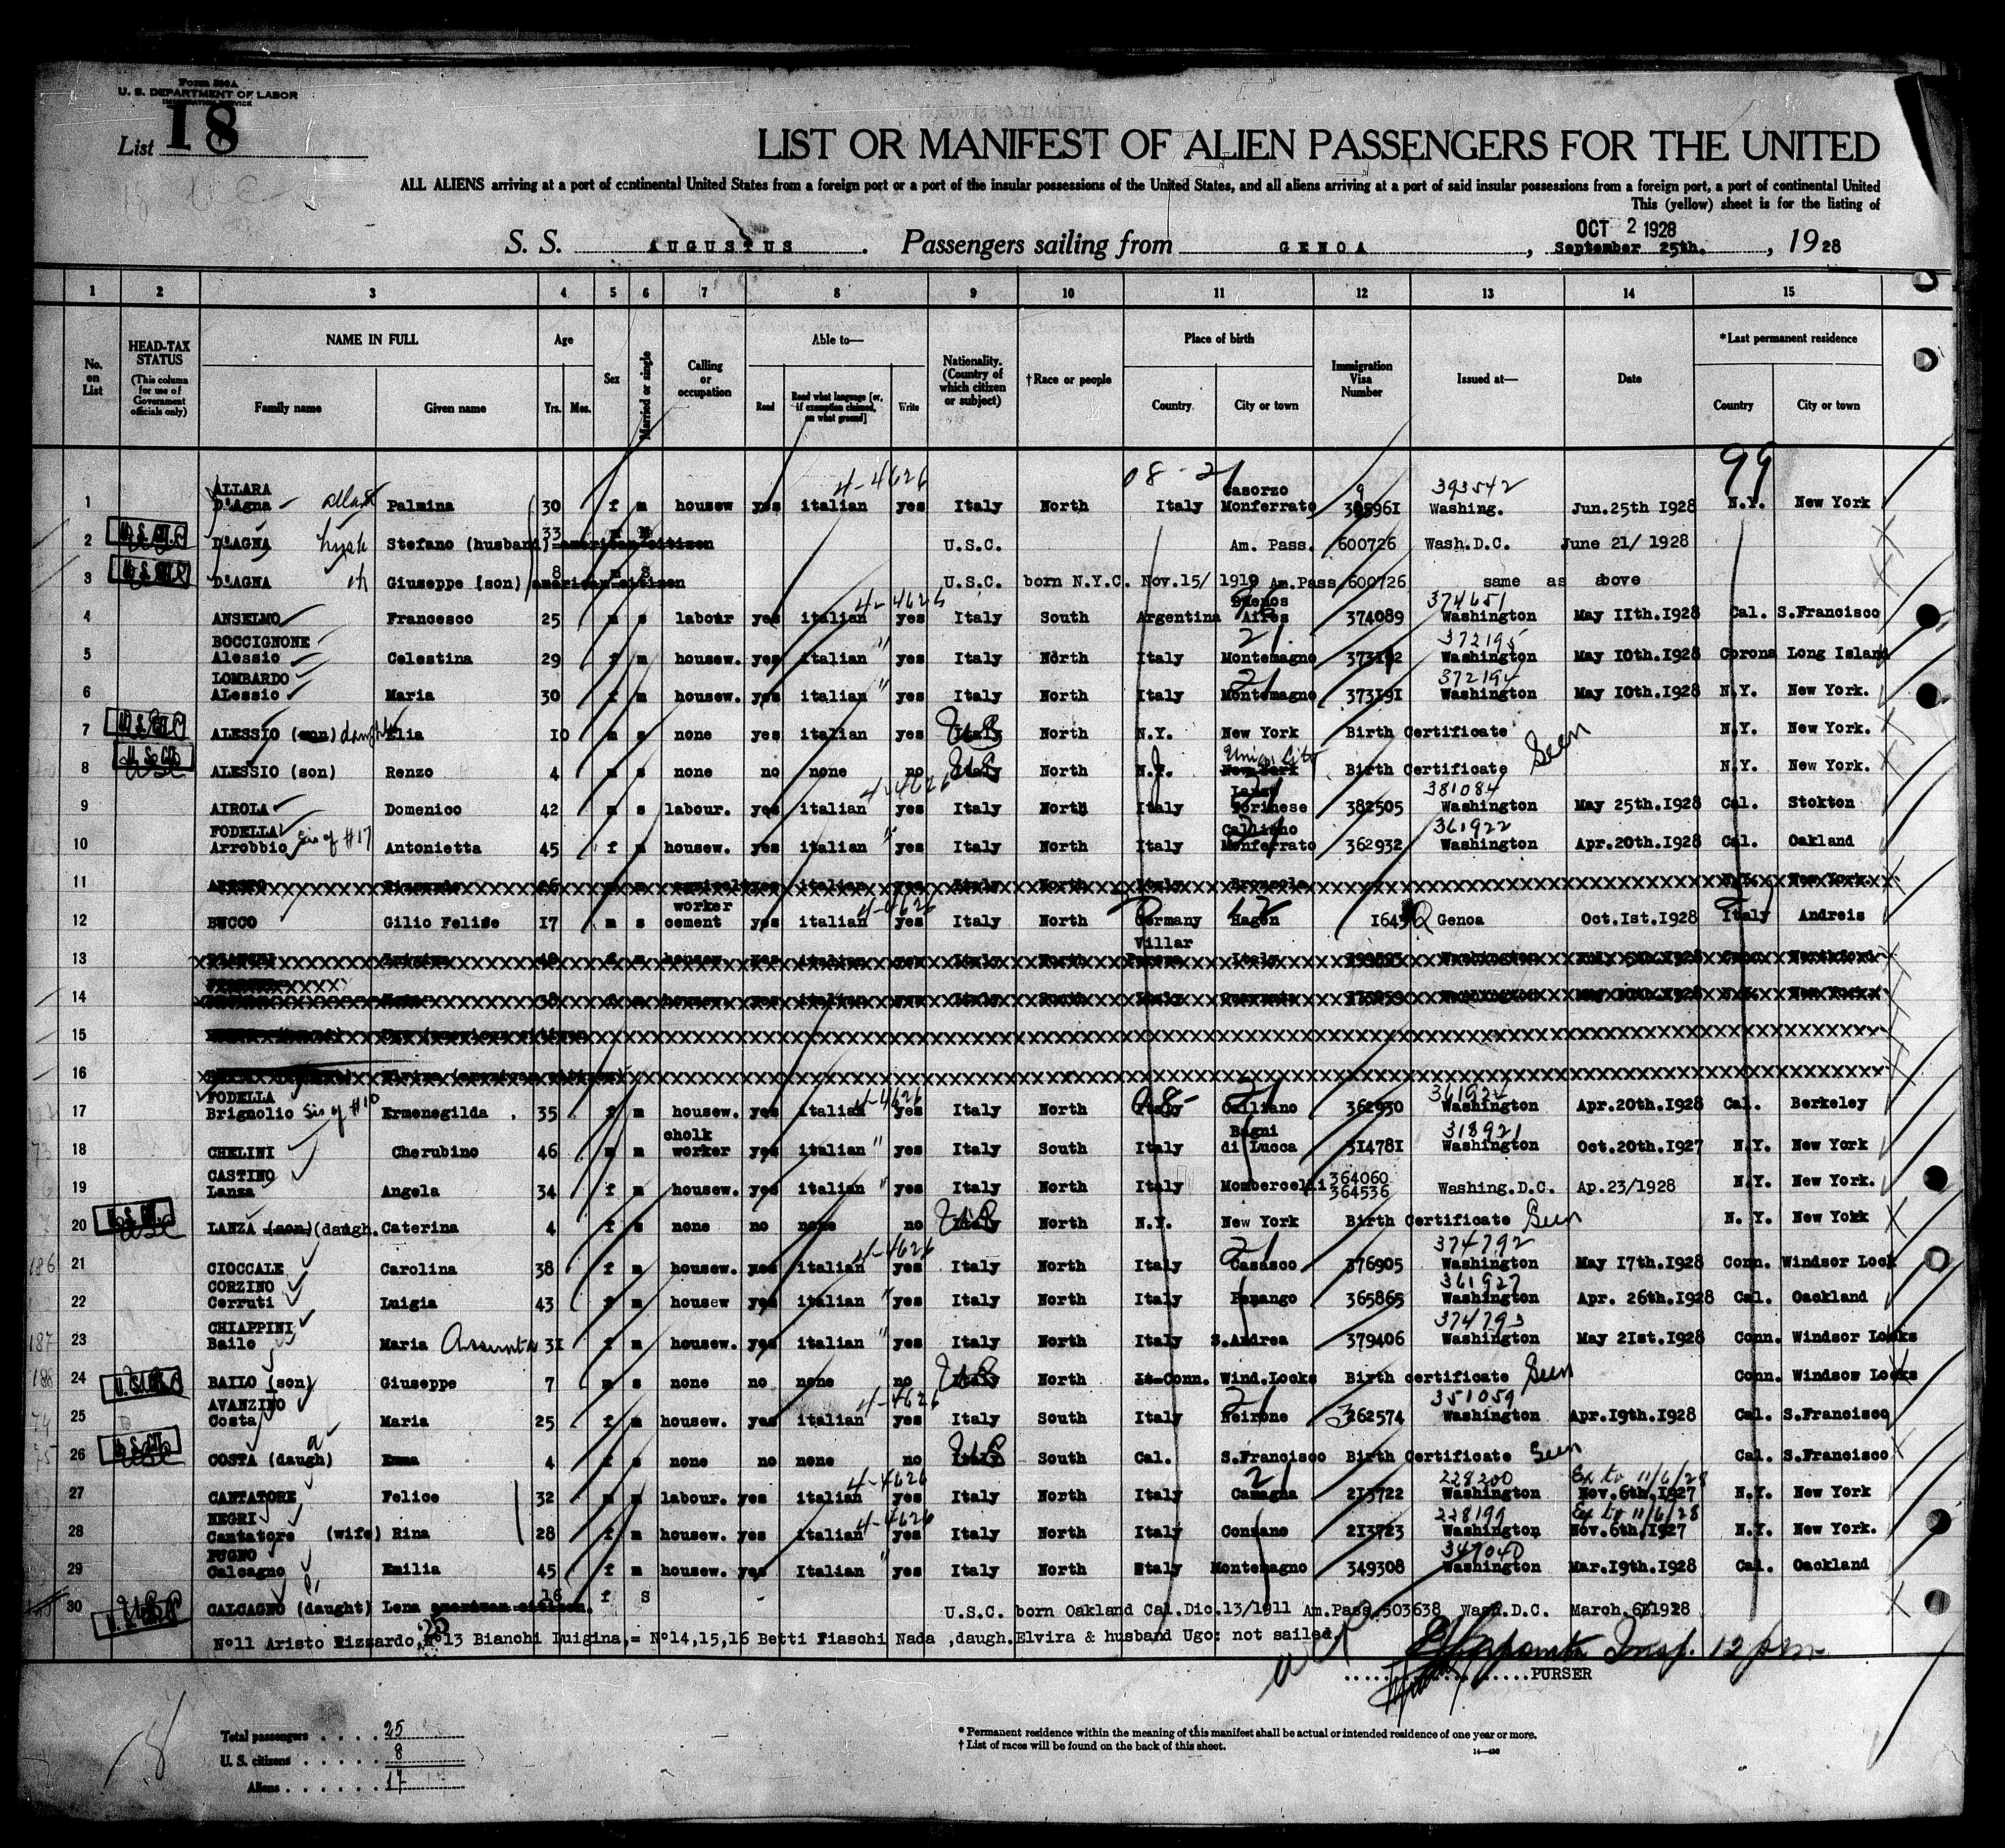 Form 500A
U. S. DEPARTMENT OF LABOR
IMMIGRATION SERVICE
List 18
LIST OR MANIFEST OF ALIEN PASSENGERS FOR THE UNITED
ALL ALIENS arriving at a port of continental United States from a foreign port or a port of the insular possessions of the United States, and all aliens arriving at a port of said insular possessions from a foreign port, a port of continental United
This (yellow) sheet is for the listing of
OCT 2 1928
S. S. AUGUSTUS. Passengers sailing from GENOA, September 25th., 1928
1 2 3 4 5 6 7 8 9 10 11 12 13 14 15
No. on List
HEAD-TAX STATUS (This column for use of Government officials only)
NAME IN FULL
Family name Given name
Age Yrs. Mos.
Sex
Married or single
Calling or occupation
Able to— Read Read what language [or, if exemption claimed, on what ground] Write
Nationality. (Country of which citizen or subject)
†Race or people
Place of birth Country City or town
Immigration Visa Number
Issued at—
Date
*Last permanent residence Country City or town
99
08-21
ALLARA 4-4626 Casorzo 9 393542
1 D'Agna Palmina 30 f m housew yes italian yes Italy North Italy Monferrato 395961 Washing. Jun.25th 1928 N.Y. New York
2 D'AGNA Stefano (husband) american citizen 33 m M U.S.C. Am. Pass. 600726 Wash.D.C. June 21/ 1928
3 D'AGNA Giuseppe (son) american citizen 8 m S U.S.C. born N.Y.C. Nov.15/ 1919 Am.Pass 600726 same as above
4-4626 Buenos 374651
4 ANSELMO Francesco 25 m s labour yes italian yes Italy South Argentina Aires 374089 Washington May 11th.1928 Cal. S.Francisco
BOCCIGNONE " 21 372195
5 Alessio Celestina 29 f m housew. yes italian yes Italy North Italy Montemagno 373192 Washington May 10th.1928 Corona Long Island
LOMBARDO " 21 372194
6 ALessio Maria 30 f m housew. yes italian yes Italy North Italy Montemagno 373191 Washington May 10th.1928 N.Y. New York.
7 ALESSIO (son) daugh Elia 10 m s none yes italian yes Italy North N.Y. New York Birth Certificate Seen N.Y. New York.
Union City
8 ALESSIO (son) Renzo 4 m s none no none no Italy North N.Y. New York Birth Certificate N.Y. New York.
4-4626 Lanzo 381084
9 AIROLA Domenico 42 m s labour. yes italian yes Italy North Italy Torinese 382505 Washington May 25th.1928 Cal. Stokton
FODELLA Sis of #17 " Calliano 361922
10 Arrobbio Antonietta 45 f m housew. yes italian yes Italy North Italy Monferrato 362932 Washington Apr.20th.1928 Cal. Oakland
11
worker 4-4626
12 BUCCO Gilio Felise 17 m s cement yes italian yes Italy North Germany Hagen Genoa Oct.1st.1928 Italy Andreis
Villar
13
14
15
16
FODELLA Sis of #10 4-4626 21
17 Brignolio Ermenegilda 35 f m housew. yes italian yes Italy North Italy Calliano 362930 Washington Apr.20th.1928 Cal. Berkeley
cholk Bagni 318921
18 CHELINI Cherubino 46 m m worker yes italian " yes Italy South Italy di Lucca 314781 Washington Oct.20th.1927 N.Y. New York
CASTINO 364060
19 Lanza Angela 34 f m housew. yes italian " yes Italy North Italy Mombercelli 364536 Washing.D.C. Ap.23/1928 N.Y. New York.
20 LANZA (son) (daugh. Caterina 4 f s none no none no Italy North N.Y. New York Birth Certificate Seen N. Y. New York
4-4626 21 374792
21 CIOCCALE Carolina 38 f m housew. yes italian yes Italy North Italy Casasco 376905 Washington May 17th.1928 Conn. Windsor Lock
CORZINO 361927
22 Cerruti Luigia 43 f m housew yes italian " yes Italy North Italy Penango 365865 Washington Apr. 26th.1928 Cal. Oackland
CHIAPPINI 374793
23 Bailo Maria Assunta 31 f m housew. yes italian " yes Italy North Italy S.Andrea 379406 Washington May 21st.1928 Conn. Windsor Locks
24 BAILO (son) Giuseppe 7 m s none no none no Italy North It Conn. Wind.Locks Birth certificate Seen Conn. Windsow Locks
AVANZINO 4-4626 21 351059
25 Costa Maria 25 f m housew. yes italian yes Italy South Italy Neirone 3262574 Washington Apr.19th.1928 Cal. S.Francisco
26 COSTA (daugh) Emma 4 f s none no none no Italy South Cal. S.Francisco Birth Certificate Seen Cal. S.Francisco
4-4626 21 228200 Ex to 11/6/28
27 CANTATORE Felice 32 m m labour. yes italian yes Italy North Italy Camagna 213722 Washington Nov.6th.1927 N.Y. New York
NEGRI 4-4626 228199 Ex to 11/6/28
28 Cantatore (wife) Rina 28 f m housew. yes italian yes Italy North Italy Conzano 213723 Washington Nov.6th.1927 N.Y. New York.
PUGNO 347040
29 Calcagno Emilia 45 f m housew. yes Italian " yes Italy North Italy Montemagno 349308 Washington Mar.19th.1928 Cal. Oackland
30 CALCAGNO (daught) Lena american citizen. 16 f S U.S.C. born Oakland Cal.Dic.13/1911 Am.Pass.503638 Wash.D.C. March.6/1928
N°11 Aristo Rizzardo, N°13 Bianchi Luigina,= N°14,15,16 Betti Fiaschi Nada ,daugh.Elvira & husband Ugo: not sailed
25
Insp. 12 pm
PURSER
Total passengers . . . . 25
U. S. citizens . . . . . 8
Aliens . . . . . . 17
* Permanent residence within the meaning of this manifest shall be actual or intended residence of one year or more.
† List of races will be found on the back of this sheet.
14—430